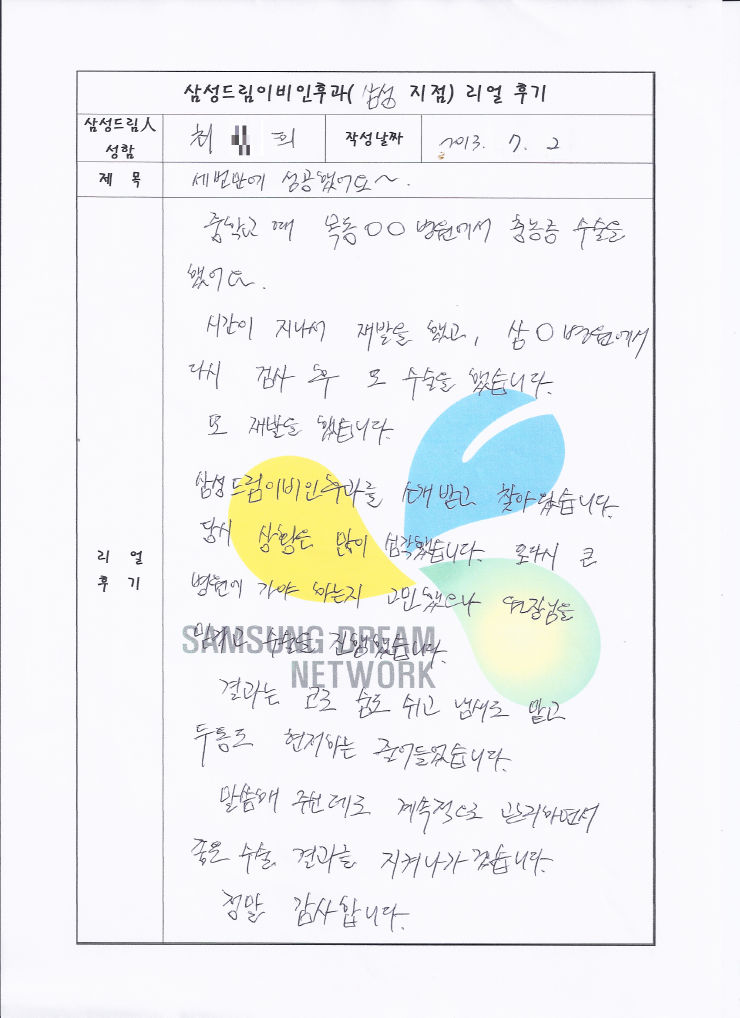 삼성드림이비인후과( 삼성 지점) 리얼 후기
삼성드림人 성함 최 희 작성날짜 2013. 7. 2
제 목 세번만에 성공했어요~.
중학교 때 목동○○병원에서 축농증 수술을
했어요.
시간이 지나서 재발을 했고, 삼○병원에서
다시 검사 후 또 수술을 했습니다.
또 재발을 했습니다.
삼성드림이비인후과를 소개 받고 찾아 왔습니다.
당시 상황은 많이 심각했습니다. 또다시 큰
리 얼 후 기
병원에 가야 하는지 고민했으나 원장님을
믿고 수술을 진행했습니다.
SAMSUNG DREAM
NETWORK
결과는 코로 숨도 쉬고 냄새도 맡고
두통도 현저하는 줄어들었습니다.
말씀해 주신 데로 계속적으로 관리하면서
좋은 수술 결과를 지켜나가겠습니다.
정말 감사합니다.